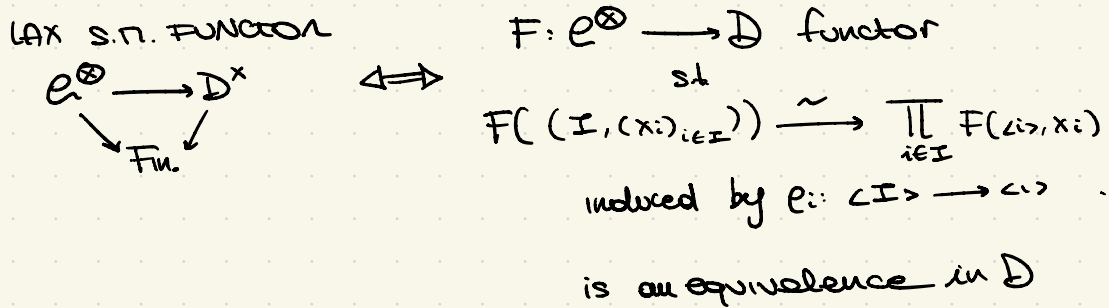 LAX S.M. FUNCTOR
C^⊗ ⟶ D^×
↘ ↙
Fin.
⟺
F: C^⊗ ⟶ D functor
s.t.
F( (I, (xi)_{i∈I}) ) ⟶^∼ ∏_{i∈I} F(<i>, xi)
induced by ρi: <I> ⟶ <1>
is an equivalence in D